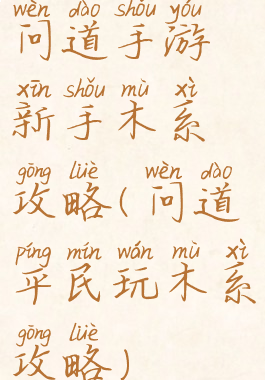 wèn dào shǒu yóu
问道手游
xīn shǒu mù xì
新手木系
gōng lüè wèn dào
攻略(问道
píng mín wán mù xì
平民玩木系
gōng lüè
攻略)